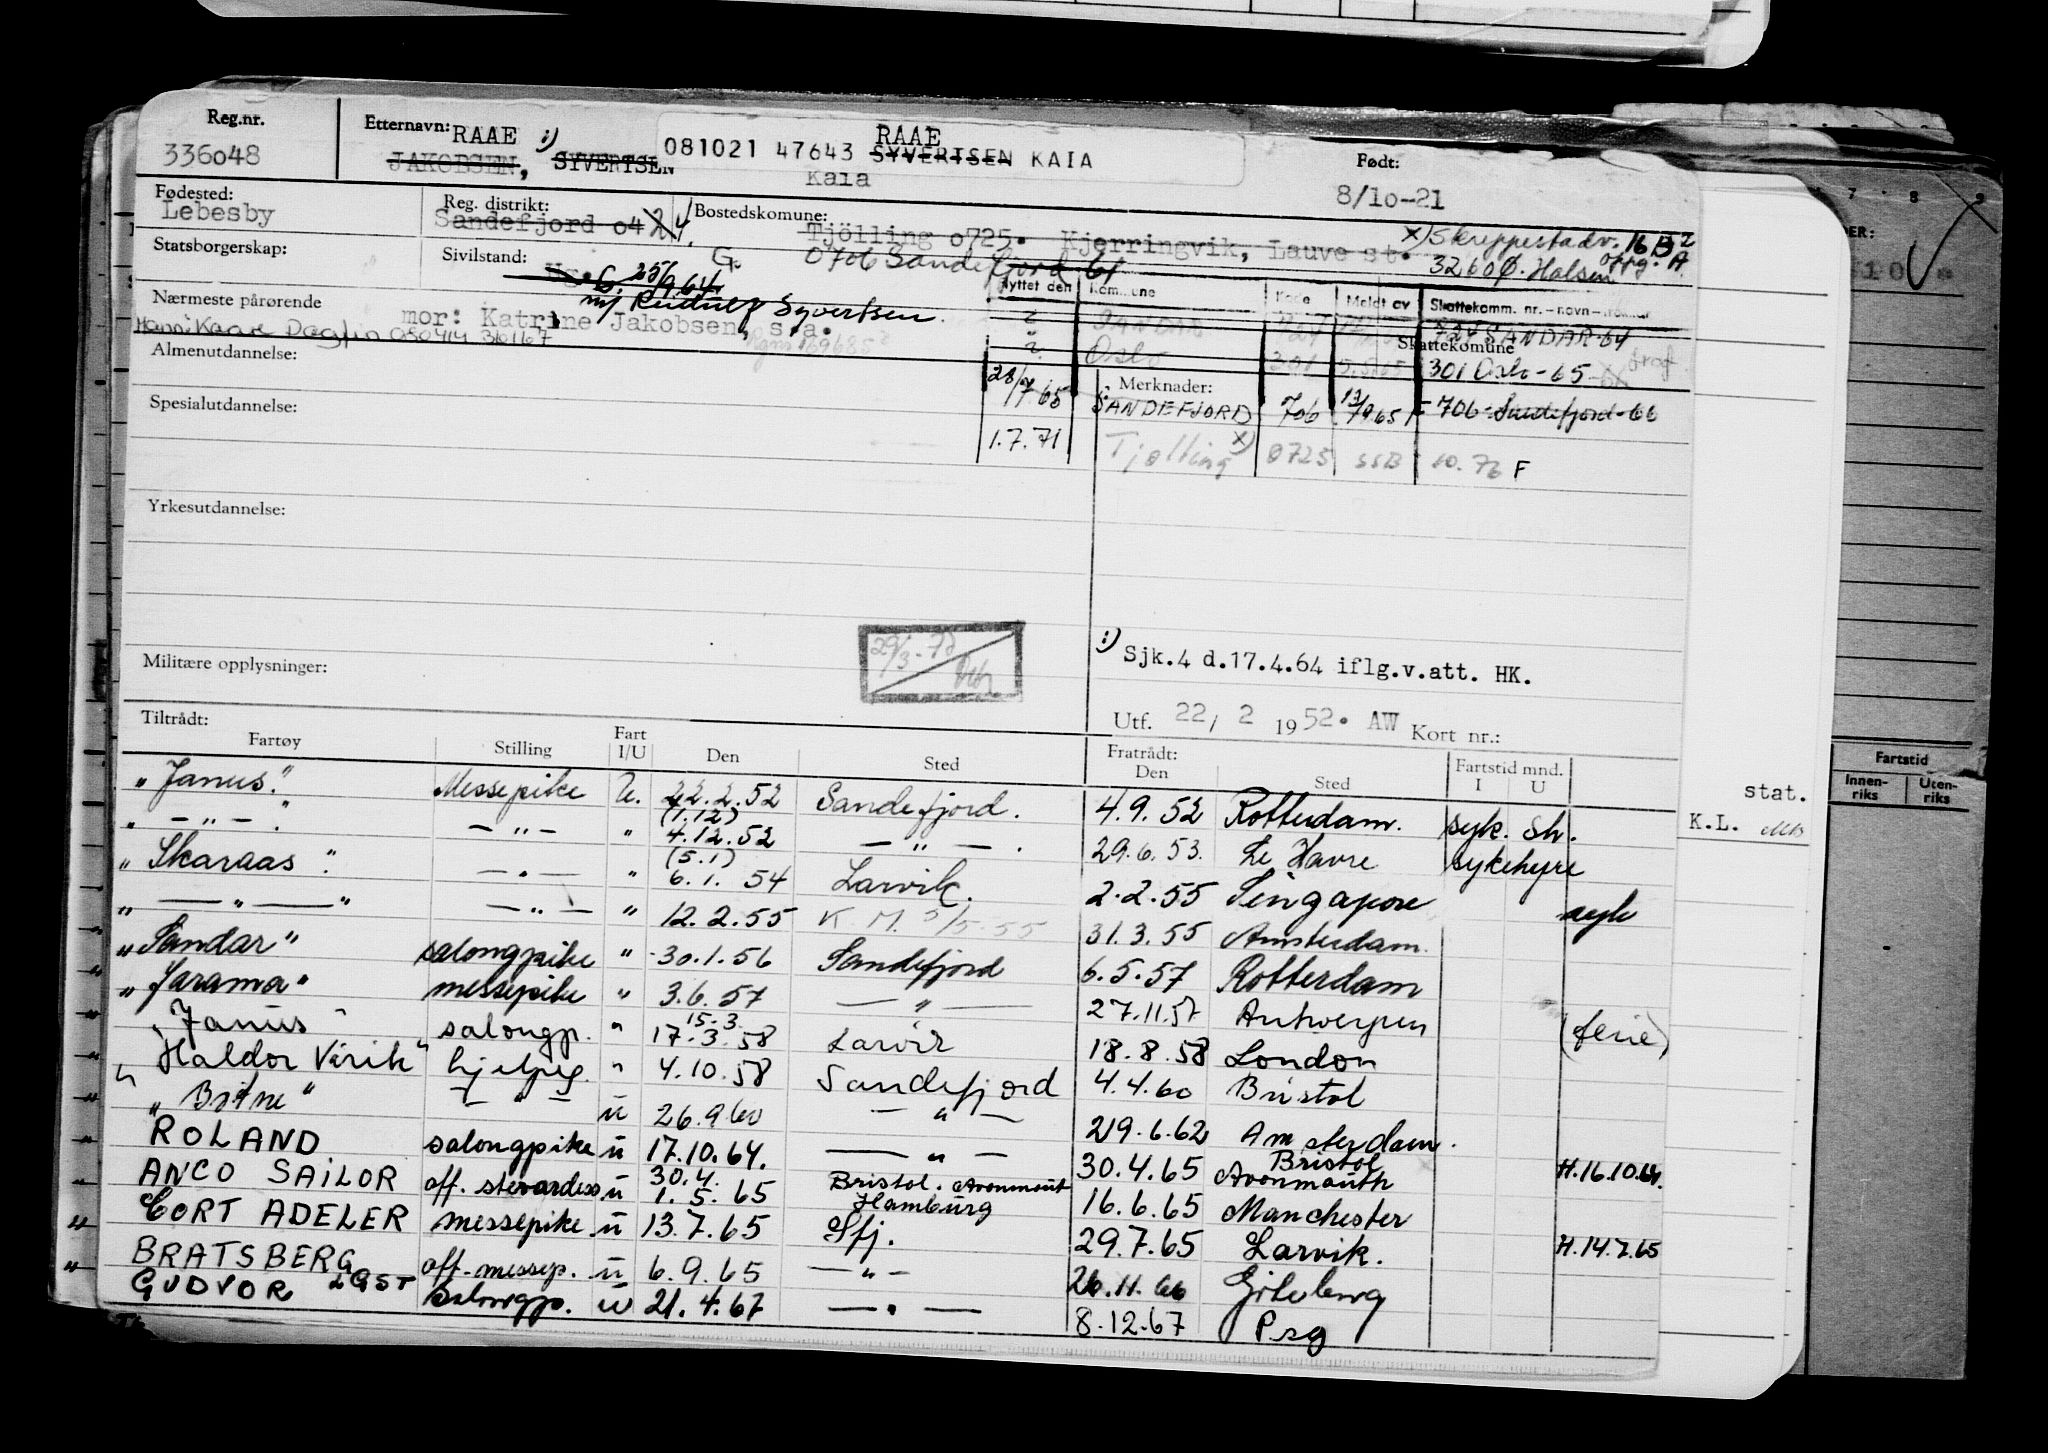 Reg.nr. Etternavn: RAAE :) RAAE
336o48 JAKOBSEN, SYVERTSEN 081021 47643 SYVERTSEN KAIA Født:
Kaia 8/1o-21
Fødested: Reg. distrikt: Bostedskomune:
Lebesby Sandefjord o4 24. Tjölling o725. Kjerringvik, Lauve st. x) Skreppestadv. 16 B
Statsborgerskap: Sivilstand: G. 0706 Sandefjord 61 3260 Ø. Halsen oppg. A.
G. 25/9 64 Flyttet den Kommune Kode Meldt av Skattekomm. nr.-navn-fra
Nærmeste pårørende mor: Katrine Jakobsen, s.a. m/ Reidulf Syvertsen.
SANDAR 724 SANDAR-64
Skattekomune
Oslo 301 301 Oslo-65
Almenutdannelse: 28/7 65 Merknader:
SANDEFJORD 706 706-Sandefjord-66
Spesialutdannelse:
1.7.71 Tjølling x) 0725 SSB 10.76 F
Yrkesutdannelse:
29/3-78
:) Sjk.4 d.17.4.64 iflg.v.att. HK.
Militære opplysninger:
Utf. 22/ 2 1952. AW Kort nr.:
Tiltrådt: Fratrådt:
Fartøy Stilling Fart I/U Den Sted Den Sted Fartstid mnd. I U
"Janus." Messepike U. 22.2.52 Sandefjord. 4.9.52 Rotterdam. syk. Sh.
" - " - " - " - " (1.12) 4.12.52 - " - . 29.6.53. Le Havre sykehyre
"Skaraas". - " - " (5.1) 6.1. 54 Larvik. 2.2.55 Singapore
" - " - " - " - " 12.2.55 K M. 5/5-55 31.3.55 Amsterdam. syk
"Sandar" salongpike " 30.1.56 Sandefjord 6.5.57 Rotterdam
"Jarama" messepike " 3.6.57 - " - 27.11.57 Antwerpen (ferie)
"Janus" salongp. " 15-3. 17.3.58 Larvik 18.8.58 London
"Haldor Virik" hjelpeg. " 4.10.58 Sandefjord 4.4.60 Bristol
"Bøtne" - " - u 26.9.60 - " - 29.6.62 Amsterdam.
ROLAND salongpike u 17.10.64. - " - 30.4.65 Bristol Avonmouth H.16.10.64.
ANCO SAILOR off. stevardess u 30.4. 1.5.65 Bristol. Avonmout Hamburg 16.6.65 Manchester
CORT ADELER messepike u 13.7.65 Sfj. 29.7.65 Larvik. H.14.7.65
BRATSBERG off. messep. u 6.9.65 - " - 26.11.66 Göteborg
GUDVOR LGST Salongp. u 21.4.67 - " - 8.12.67 Psg
stat.
K.L.
7 8 9
Fartstid
Innen-riks Uten-riks